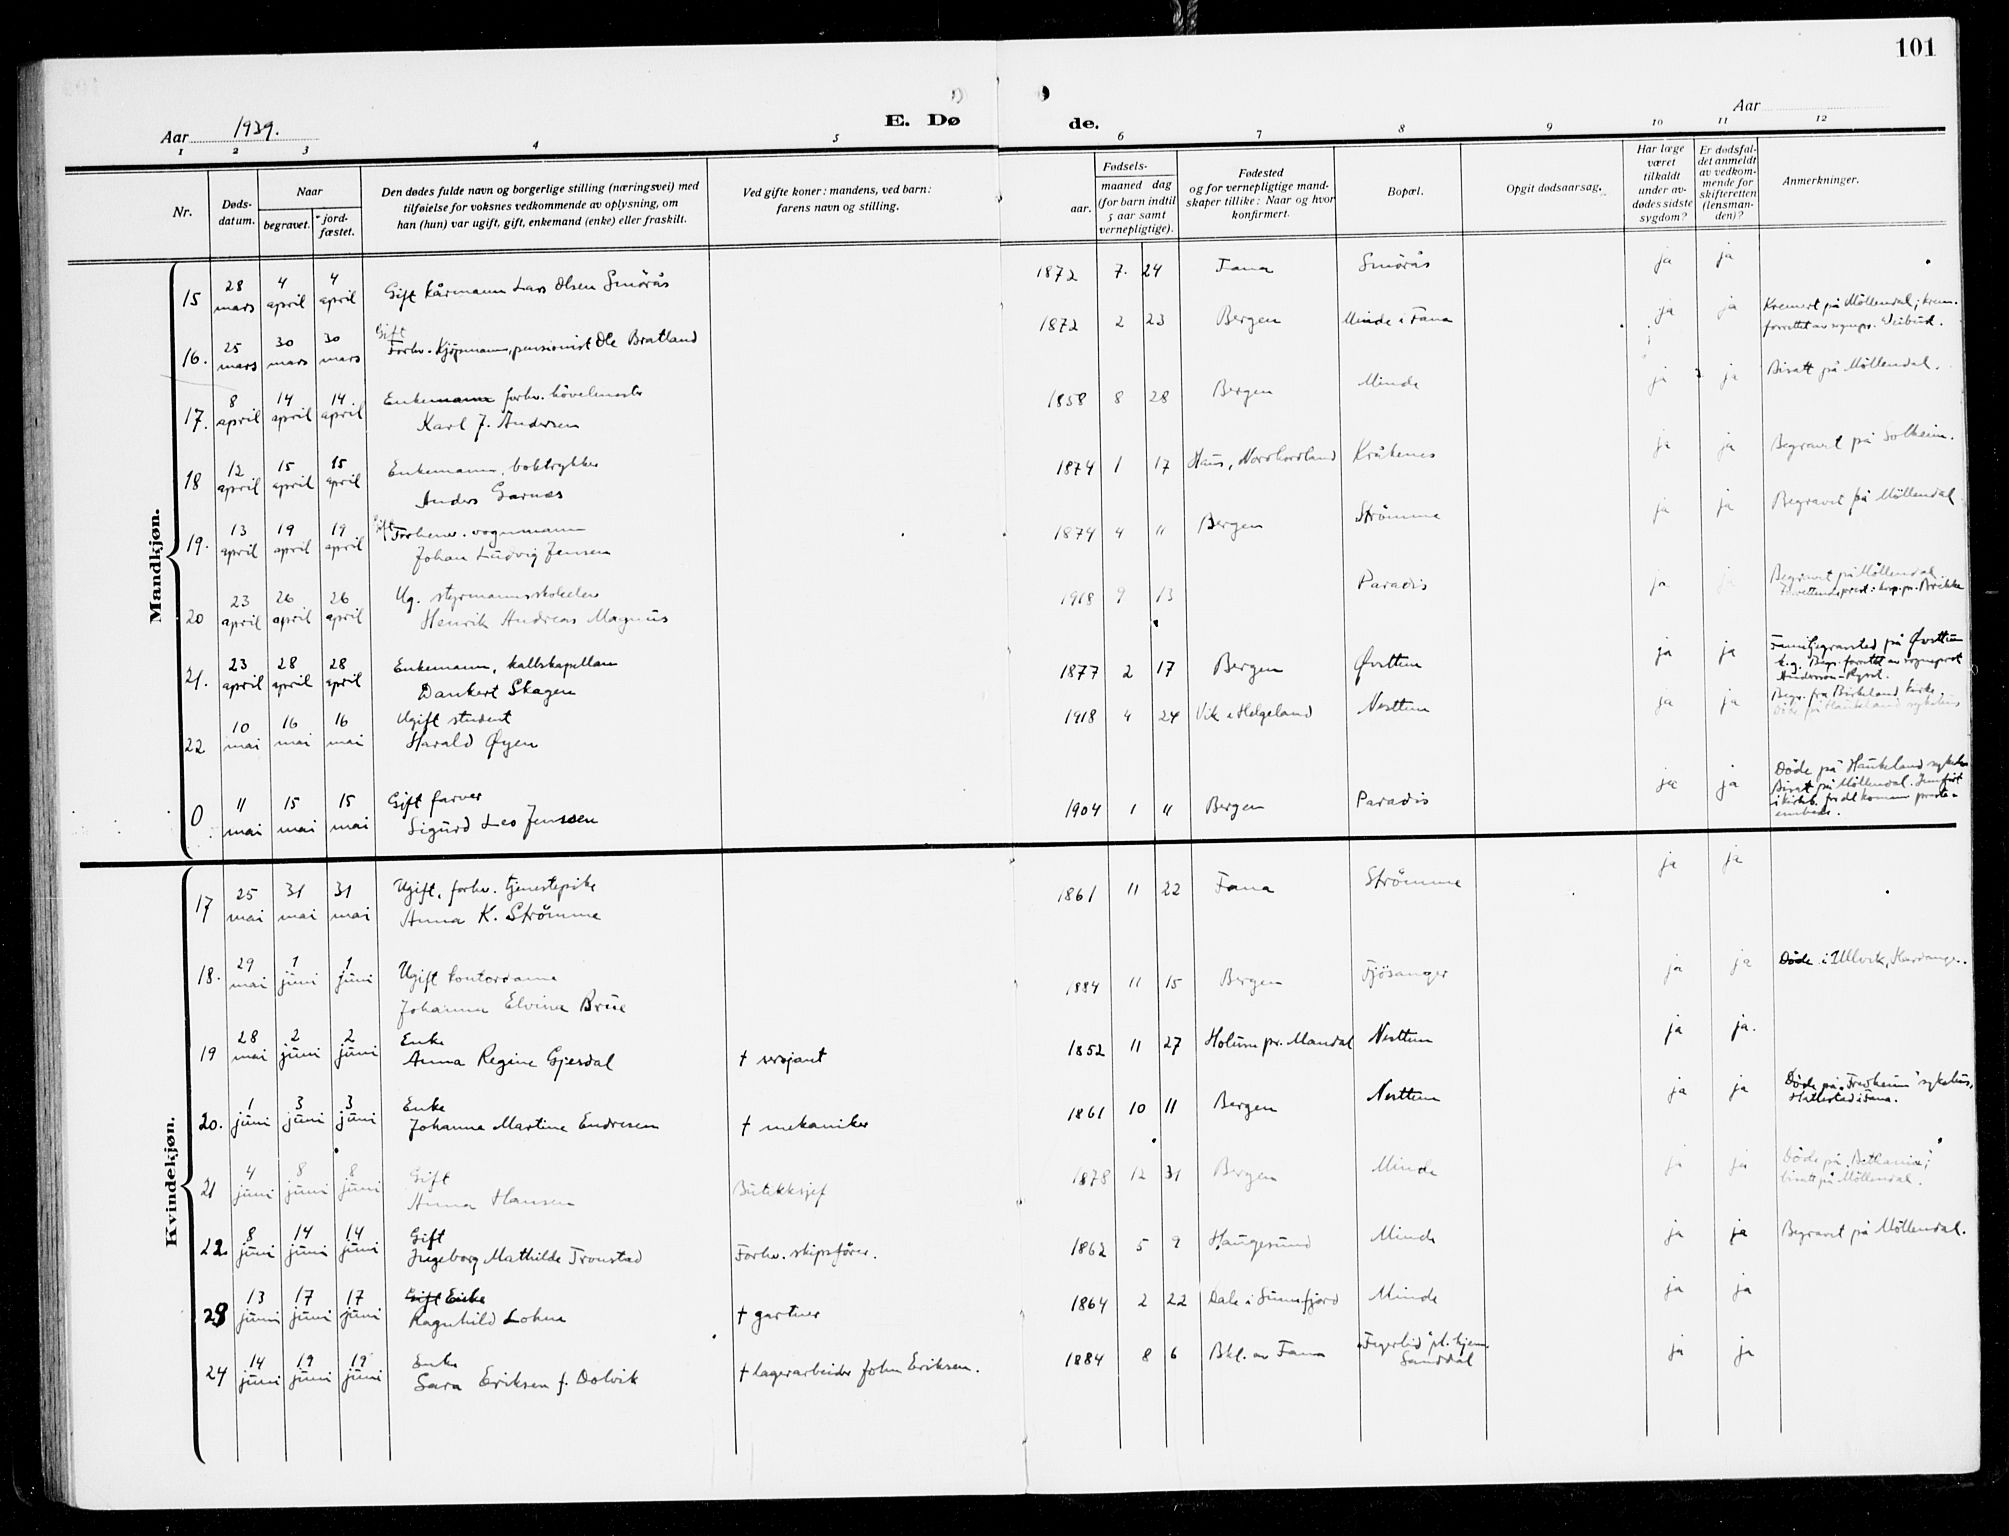 101
Aar 1939.
E. Dø
de.
Aar
1 2 3 4 5 6 7 8 9 10 11 12
Nr.
Døds-
datum.
Naar
begravet.
jord-
fæstet.
Den dødes fulde navn og borgerlige stilling (næringsvei) med
tilføielse for voksnes vedkommende av oplysning, om
han (hun) var ugift, gift, enkemand (enke) eller fraskilt.
Ved gifte koner: mandens, ved barn:
farens navn og stilling.
Fødsels-
aar.
maaned dag
(for barn indtil
5 aar samt
vernepligtige).
Fødested
og for vernepligtige mand-
skaper tillike: Naar og hvor
konfirmert.
Bopæl.
Opgit dødsaarsag.
Har læge
været
tilkaldt
under av-
dødes sidste
sygdom?
Er dødsfal-
det anmeldt
av vedkom-
mende for
skifteretten
(lensman-
den)?
Anmerkninger.
Mandkjøn.
15 28 mars 4 april 4 april Gift kårmann Lars Olsen Smörås 1872 7. 24 Fana Smörås ja ja
16. 25 mars 30 mars 30 mars Gift
Forhv. Kjøpmann, pensionist Ole Bratland 1872 2 23 Bergen Minde i Fana ja ja Kremert på Möllendal; krem.
forrettet av sognepr.
17. 8 april 14 april 14 april Enkemann forhv. hövelmester
Karl J. Andersen 1858 8 28 Bergen Minde ja ja Bisatt på Möllendal.
18 12 april 15 april 15 april Enkemann, boktrykker
Anders Garnæs 1874 1 17 Haus, Nordhordland Kråkenes ja ja Begravet på Solheim.
19. 13 april 19 april 19 april Gift
Forhenv. vognmann
Johan Ludvig Jensen 1874 4 11 Bergen Strömme ja ja Begravet på Möllendal
20 23 april 26 april 26 april Ug. styrmannsskoleelev
Henrik Andreas Magnus 1918 9 13 Paradis ja ja Begravet på Möllendal.
21. 23 april 28 april 28 april Enkemann, kallskapellan
Dankert Skagen 1877 2 17 Bergen Øvsttun ja ja Familiegravsted på Øvsttun
k.g. Begr. forrettet av sogneprest
22 10 mai 16 mai 16 mai Ugift student
Harald Øyen 1918 4 24 Vik i Helgeland Nesttun ja ja Begr. fra Birkeland kirke.
Döde på Haukeland sykehus
0 11 mai 15 mai 15 mai Gift farver
Sigurd Leo Jenssen 1904 1 11 Bergen Paradis ja ja Döde på Haukeland sykehus
Bisat på Möllendal.
Kvindekjøn.
17 25 mai 31 mai 31 mai Ugift, forhv. tjenestepike
Anna K. Strömme 1861 11 22 Fana Strömme ja ja
18. 29 mai 1 juni 1 juni Ugift kontordame
Johanna Elvina Brue 1884 11 15 Bergen Fjösanger ja ja Döde i Ulvik, Hardanger.
19 28 mai 2 juni 2 juni Enke
Anna Regine Gjesdal † sersjant 1852 11 27 Holum pr. Mandal Nesttun ja ja.
20. 1 juni 3 juni 3 juni Enke
Johanna Martine Endresen † mekaniker 1861 10 11 Bergen Nesttun ja ja Döde på "Fredheim" sykehus,
Hattestad i Fana.
21 4 juni 8 juni 8 juni Gift
Anna Hansen Butikksjef 1878 12 31 Bergen Minde ja ja Döde på "Bethania";
bisatt på Möllendal.
22 8 juni 14 juni 14 juni Gift
Ingeborg Mathilde Tronstad Forhv. skipsfører. 1862 5 9 Haugesund Minde ja ja Begravet på Möllendal.
23 13 juni 17 juni 17 juni Gift Enke
Ragnhild Lohne † gartner 1864 2 22 Dale i Sunnfjord Minde ja ja
24 14 juni 19 juni 19 juni Enke
Sara Eriksen f. Dolvik † lagerarbeider John Eriksen. 1884 8 6 Bkl. av Fana "Fagerlid" pl.hjem
Sanddal ja ja